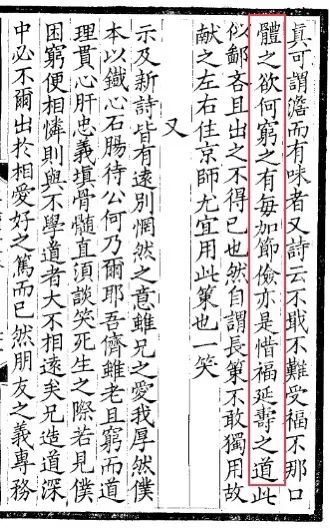 真可謂澹而有味者又詩云不戢不難受福不那口
體之欲何窮之有每加節儉亦是惜福延壽之道此
似鄙吝且出之不得已也然自謂長策不敢獨用故
献之左右住京師尤宜用此策也一笑
又
示及新詩皆有遠別惘然之意雖兄之愛我厚然僕
本以鐵心石腸待公何乃爾耶吾儕雖老且窮而道
理貫心肝忠義填骨髓直須談笑死生之際若見僕
困窮便相憐則與不學道者大不相遠矣兄造道深
中必不爾出於相愛好之篤而已然朋友之義專務